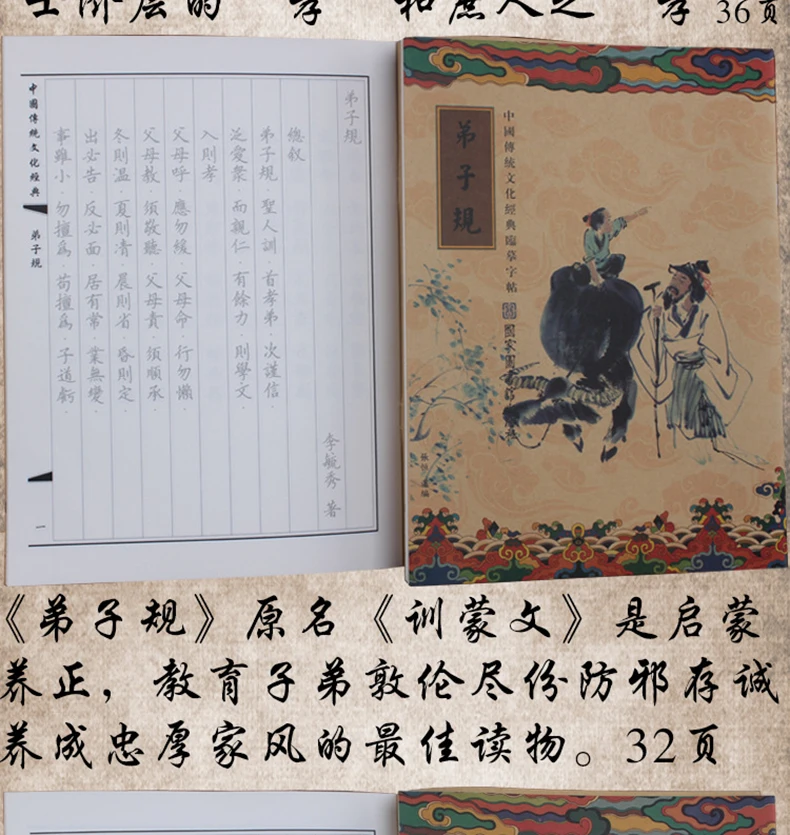 士阶层的“孝”和庶人之“孝”36页
弟子規
李毓秀 著
總叙
弟子規 聖人訓 首孝弟 次謹信
泛愛衆 而親仁 有餘力 則學文
入則孝
父母呼 應勿緩 父母命 行勿懶
父母教 須敬聽 父母責 須順承
冬則温 夏則凊 晨則省 昏則定
出必告 反必面 居有常 業無變
事雖小 勿擅爲 苟擅爲 子道虧
中國傳統文化經典
弟子規
一
中國傳統文化經典臨摹字帖
弟子規
《弟子规》原名《训蒙文》是启蒙
养正，教育子弟敦伦尽份防邪存诚
养成忠厚家风的最佳读物。32页